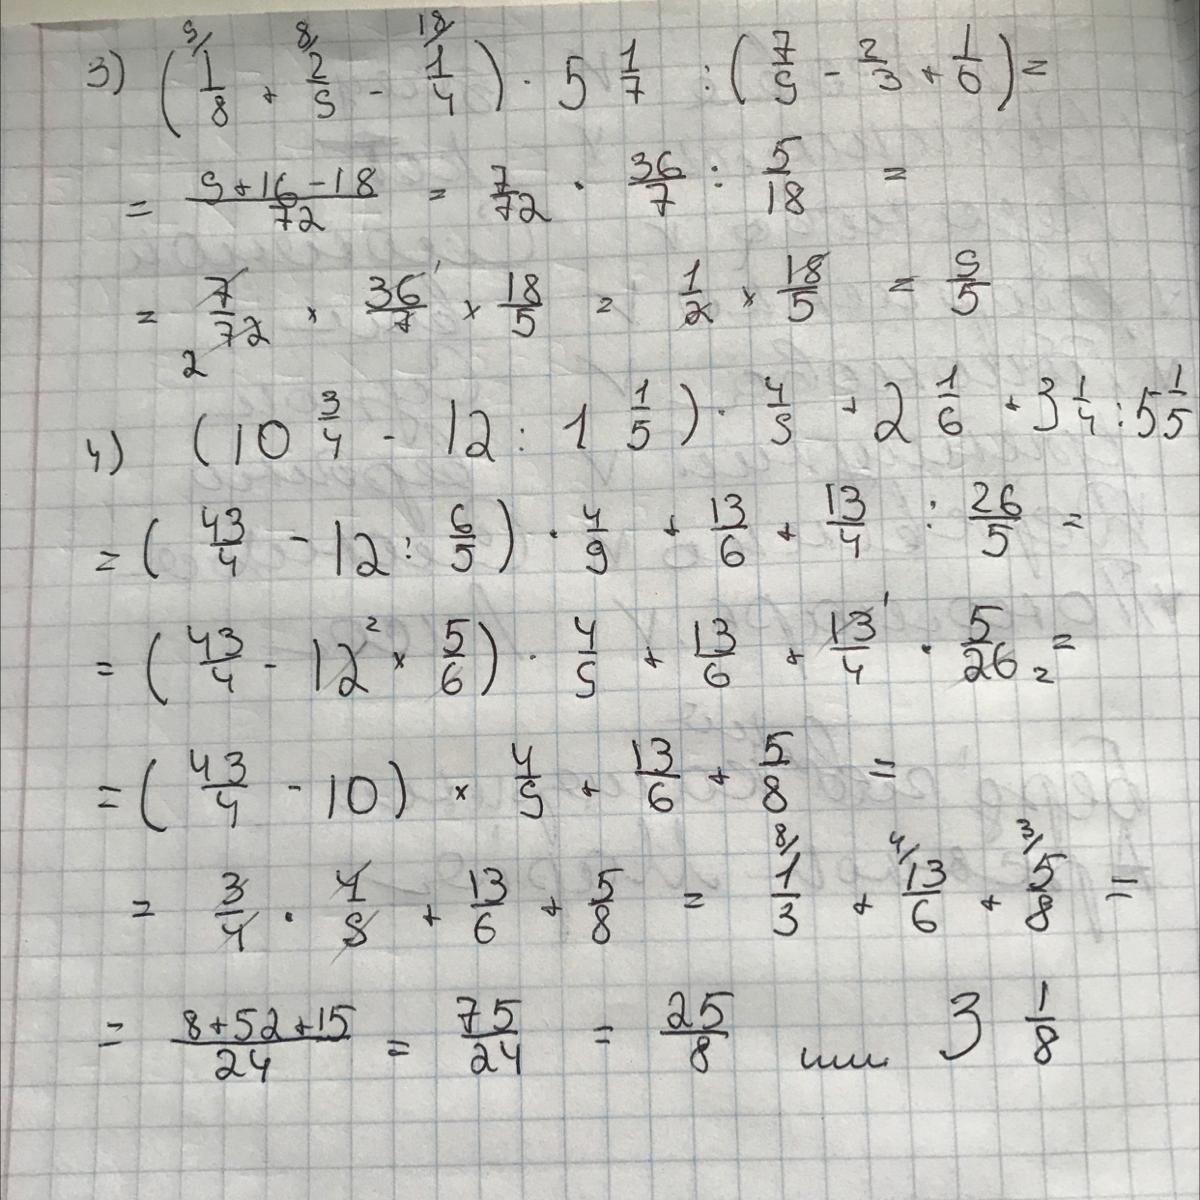 3) (⁹/1/8 + ⁸/2/9 - ¹⁸/1/4) · 5 1/7 : (7/9 - 2/3 + 1/6) =
= 9+16-18/72 = 7/72 · 36/7 : 5/18 =
= 7/72 2 × 36/7 1 × 18/5 = 1/2 × 18/5 = 9/5
4) (10 3/4 - 12 : 1 1/5) · 4/9 + 2 1/6 + 3 1/4 : 5 1/5
= (43/4 - 12 : 6/5) · 4/9 + 13/6 + 13/4 : 26/5 =
= (43/4 - 12 2 × 5/6) · 4/9 + 13/6 + 13/4 1 · 5/26 2 =
= (43/4 - 10) × 4/9 + 13/6 + 5/8 =
= 3/4 · 4/9 + 13/6 + 5/8 = ⁸/1/3 + ⁴/13/6 + ³/5/8 =
= 8+52+15/24 = 75/24 = 25/8 или 3 1/8